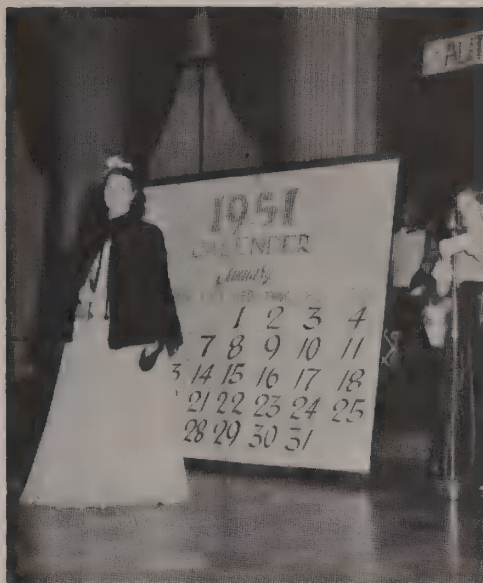 AUT
1951
CALENDER
January
1 2 3 4
7 8 9 10 11
3 14 15 16 17 18
21 22 23 24 25
28 29 30 31